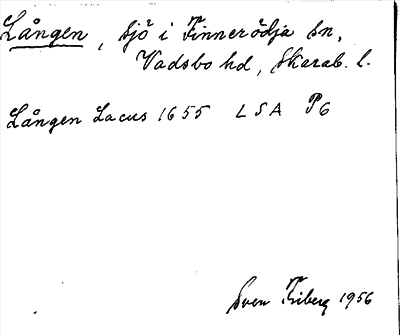 Lången, sjö i Finnerödja sn,
Vadsbo hd, Skarab. l.
Lången Lacus 1655 LSA P6
Sven Friberg 1956